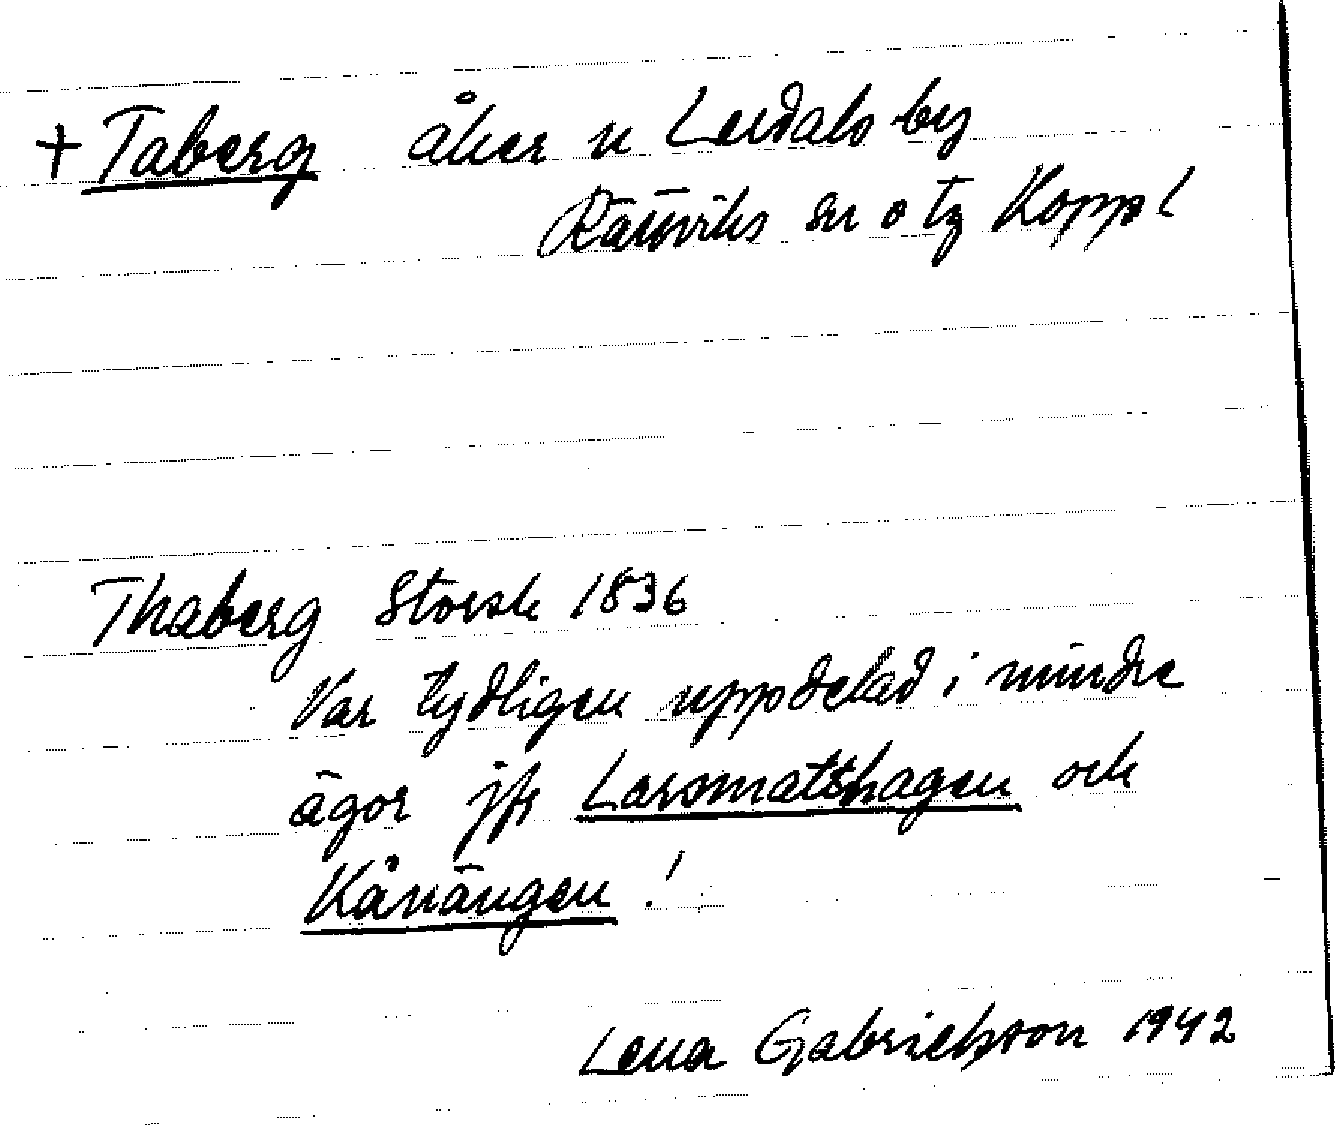 + Taberg åker n Lerdals by
Rättviks sn o tg Koppl
Thaberg Storsk 1836
Var tydligen uppdelad i mindre
ägor jfr Larsmatshagen och
Kårängen !
Lena Gabrielsson 1942